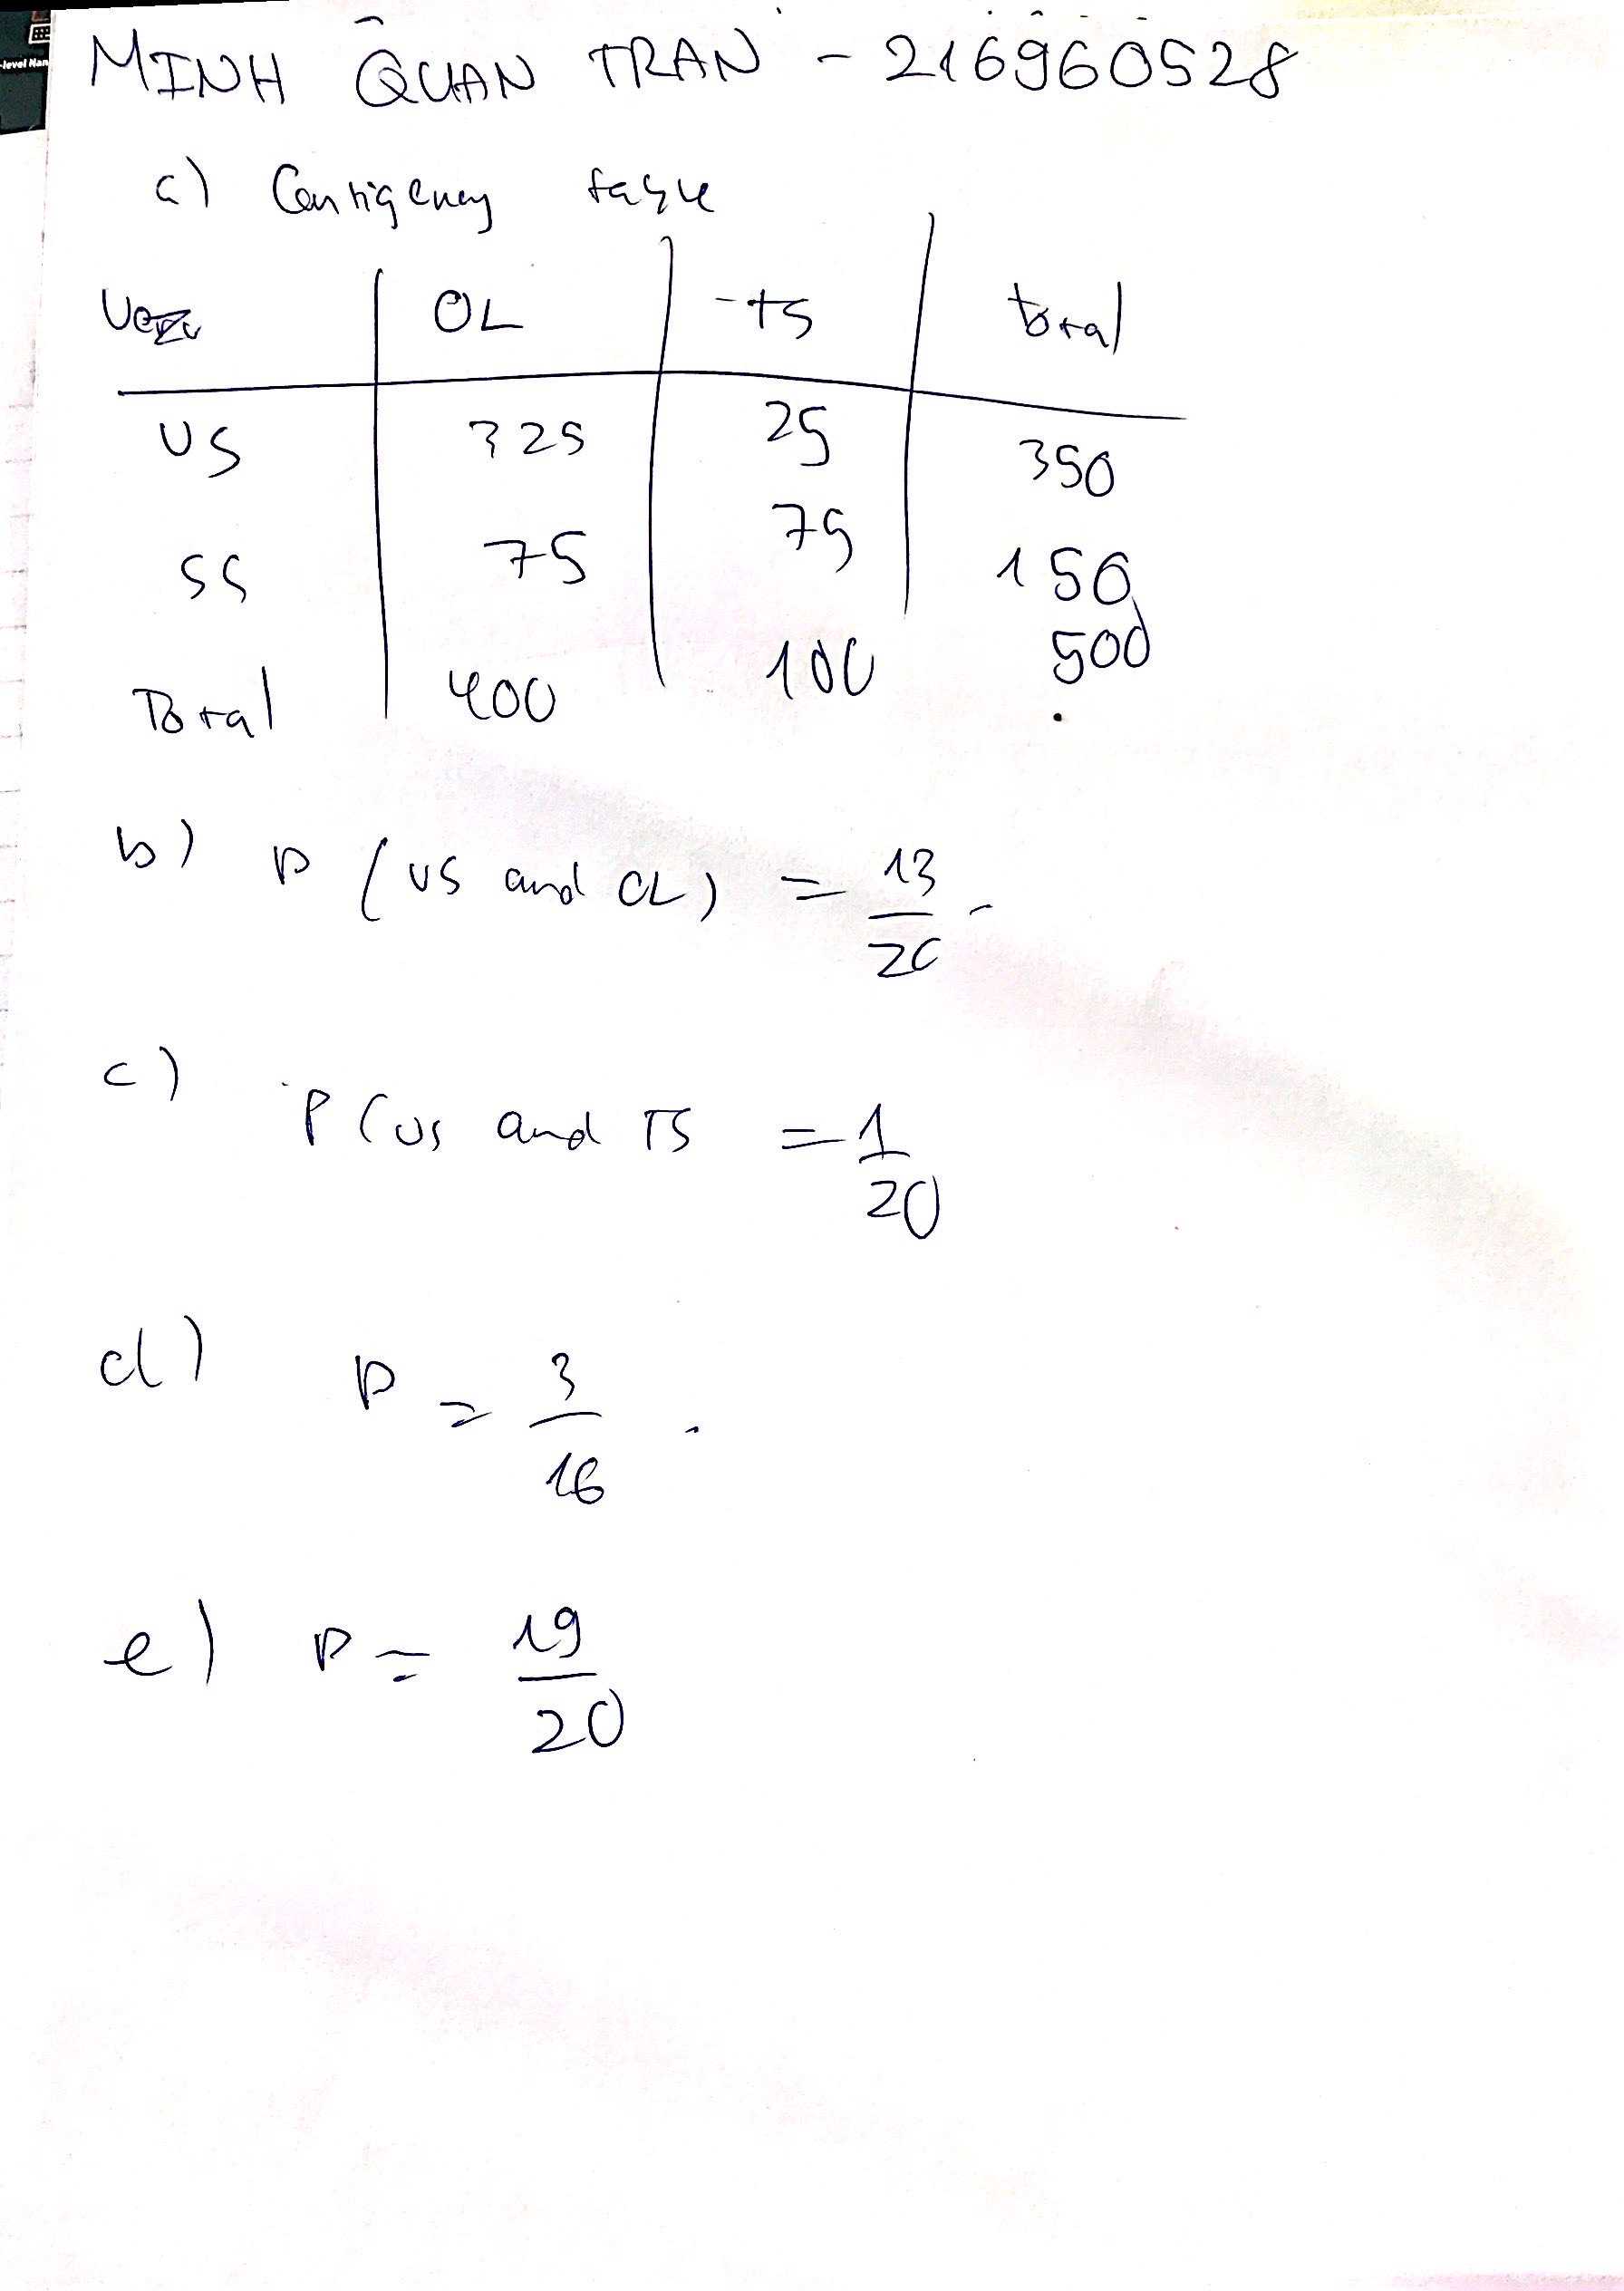 -level Han
MINH QUAN TRAN - 216960528
a) Contigency table
OL TS total
US 325 25 350
SS 75 75 150
Total 400 100 500
b) P (US and OL) = 13/20
c) P (US and TS = 1/20
d) P = 3/16
e) P = 19/20